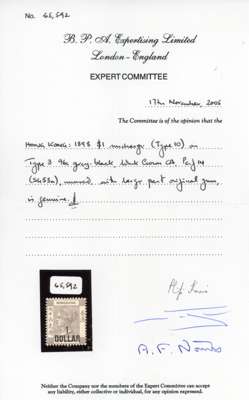 No. 65,592
B. P. A. Expertising Limited
London - England
EXPERT COMMITTEE
17th November, 2005
The Committee is of the opinion that the
Hong Kong: 1898 $1 surcharge (Type 10) on
Type 3 96c grey-black, Wmk Crown CA, Perf 14
(SG53a), unused, with large part original gum,
is genuine.
65,592
HONG KONG
1
DOLLAR
Neither the Company nor the members of the Expert Committee can accept
any liability, either collective or individual, for any opinion expressed.